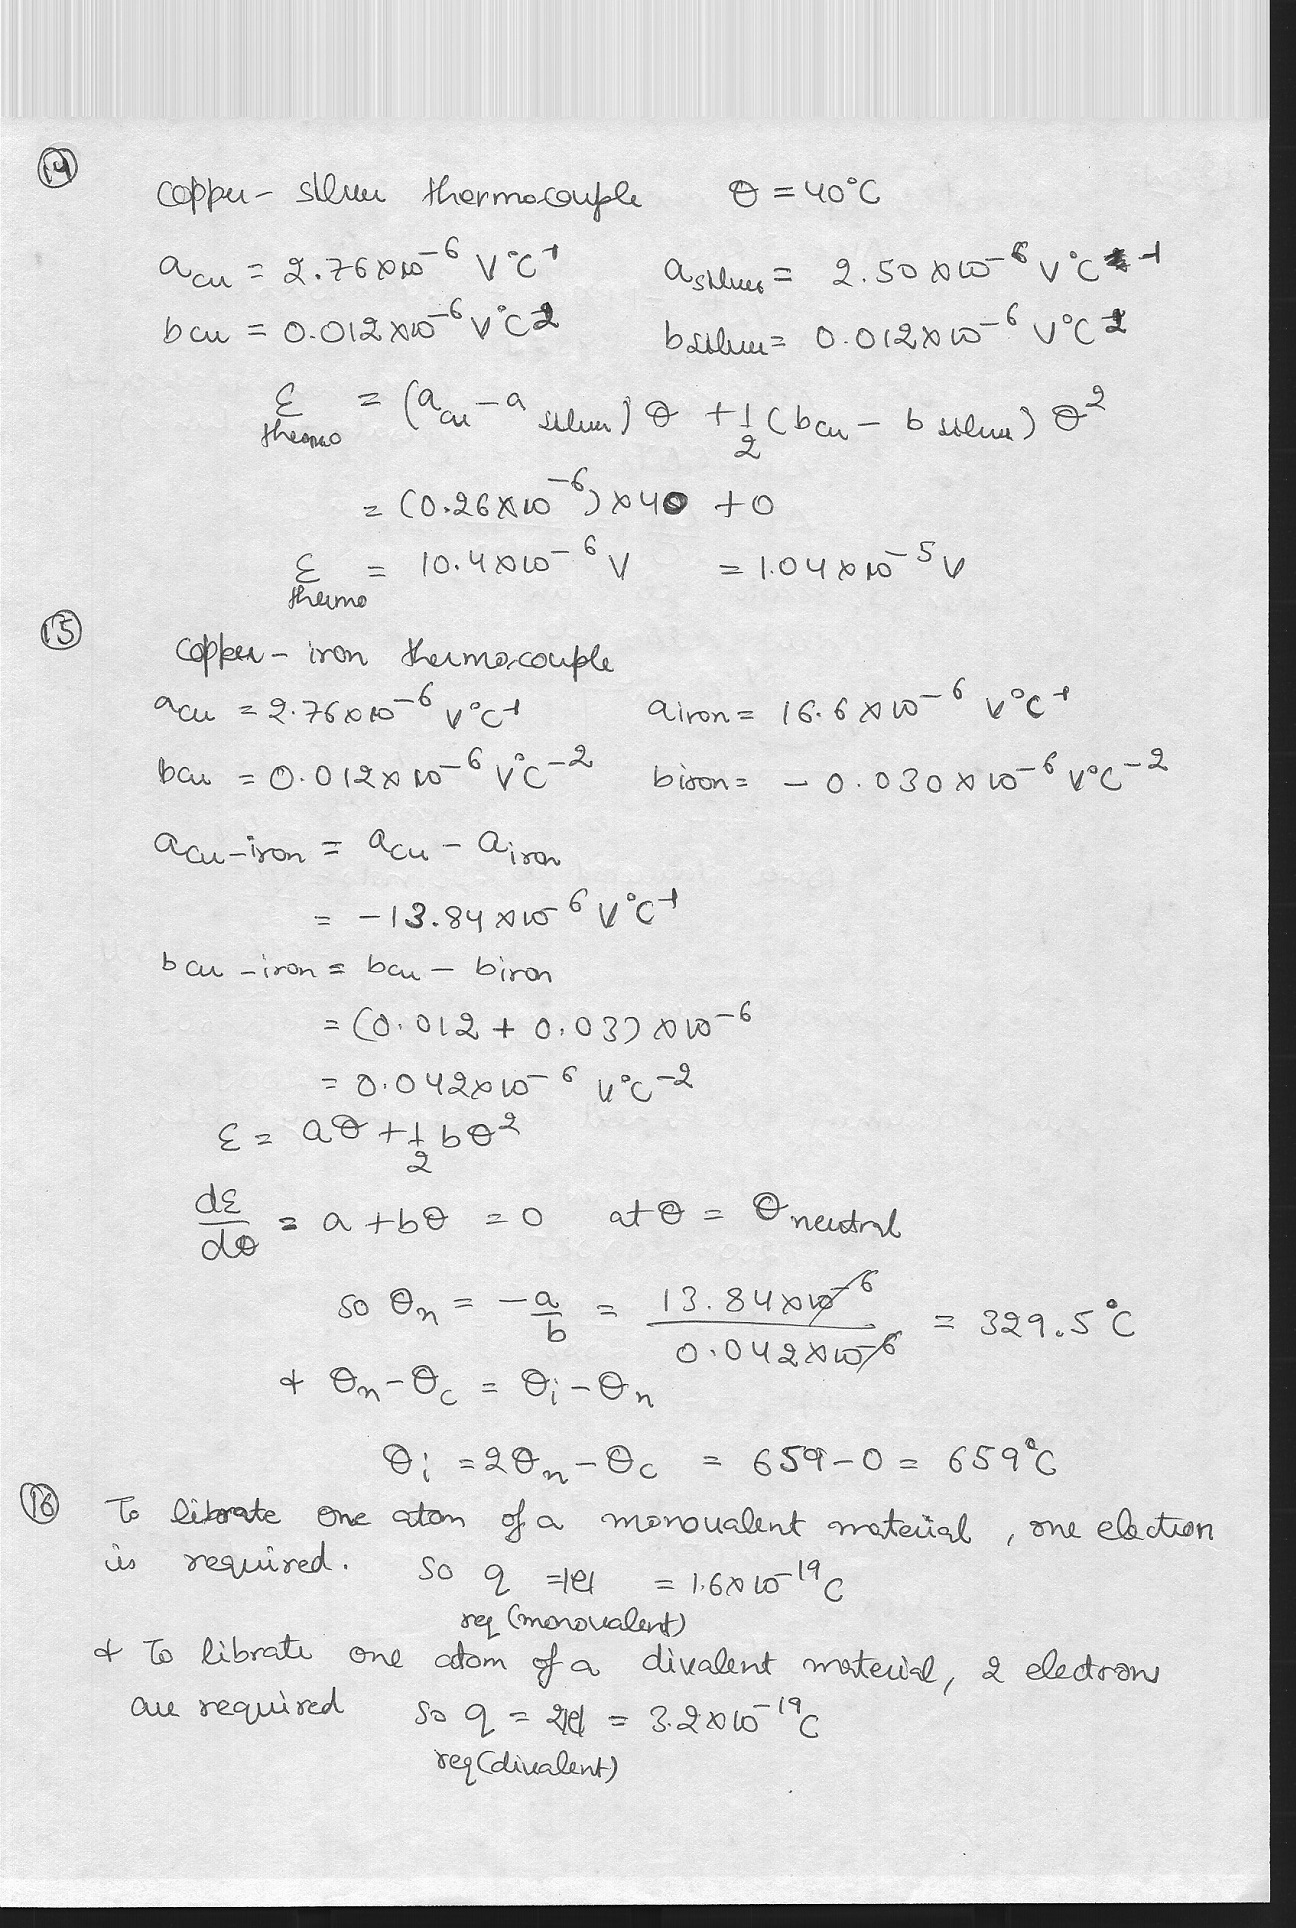 14
Copper - silver thermocouple θ = 40°C
a cu = 2.76×10⁻⁶ V°C⁻¹ a silver = 2.50×10⁻⁶ V°C⁻¹
b cu = 0.012×10⁻⁶ V°C⁻² b silver = 0.012×10⁻⁶ V°C⁻²
ε thermo = (a cu - a silver) θ + 1/2 (b cu - b silver) θ²
= (0.26×10⁻⁶) × 40 + 0
ε thermo = 10.4×10⁻⁶ V = 1.04×10⁻⁵ V
15
Copper - iron thermocouple
a cu = 2.76×10⁻⁶ V°C⁻¹ a iron = 16.6×10⁻⁶ V°C⁻¹
b cu = 0.012×10⁻⁶ V°C⁻² b iron = - 0.030×10⁻⁶ V°C⁻²
a cu-iron = a cu - a iron
= -13.84×10⁻⁶ V°C⁻¹
b cu-iron = b cu - b iron
= (0.012 + 0.03) ×10⁻⁶
= 0.042×10⁻⁶ V°C⁻²
ε = aθ + 1/2 bθ²
dε/dθ = a + bθ = 0 at θ = θ neutral
so θn = -a/b = 13.84×10⁻⁶ / 0.042×10⁻⁶ = 329.5°C
& θn - θc = θi - θn
θi = 2θn - θc = 659 - 0 = 659°C
16 To librate one atom of a monovalent material, one electron
is required. so q req (monovalent) = |e| = 1.6×10⁻¹⁹ C
& To librate one atom of a divalent material, 2 electrons
are required so q req (divalent) = 2|e| = 3.2×10⁻¹⁹ C